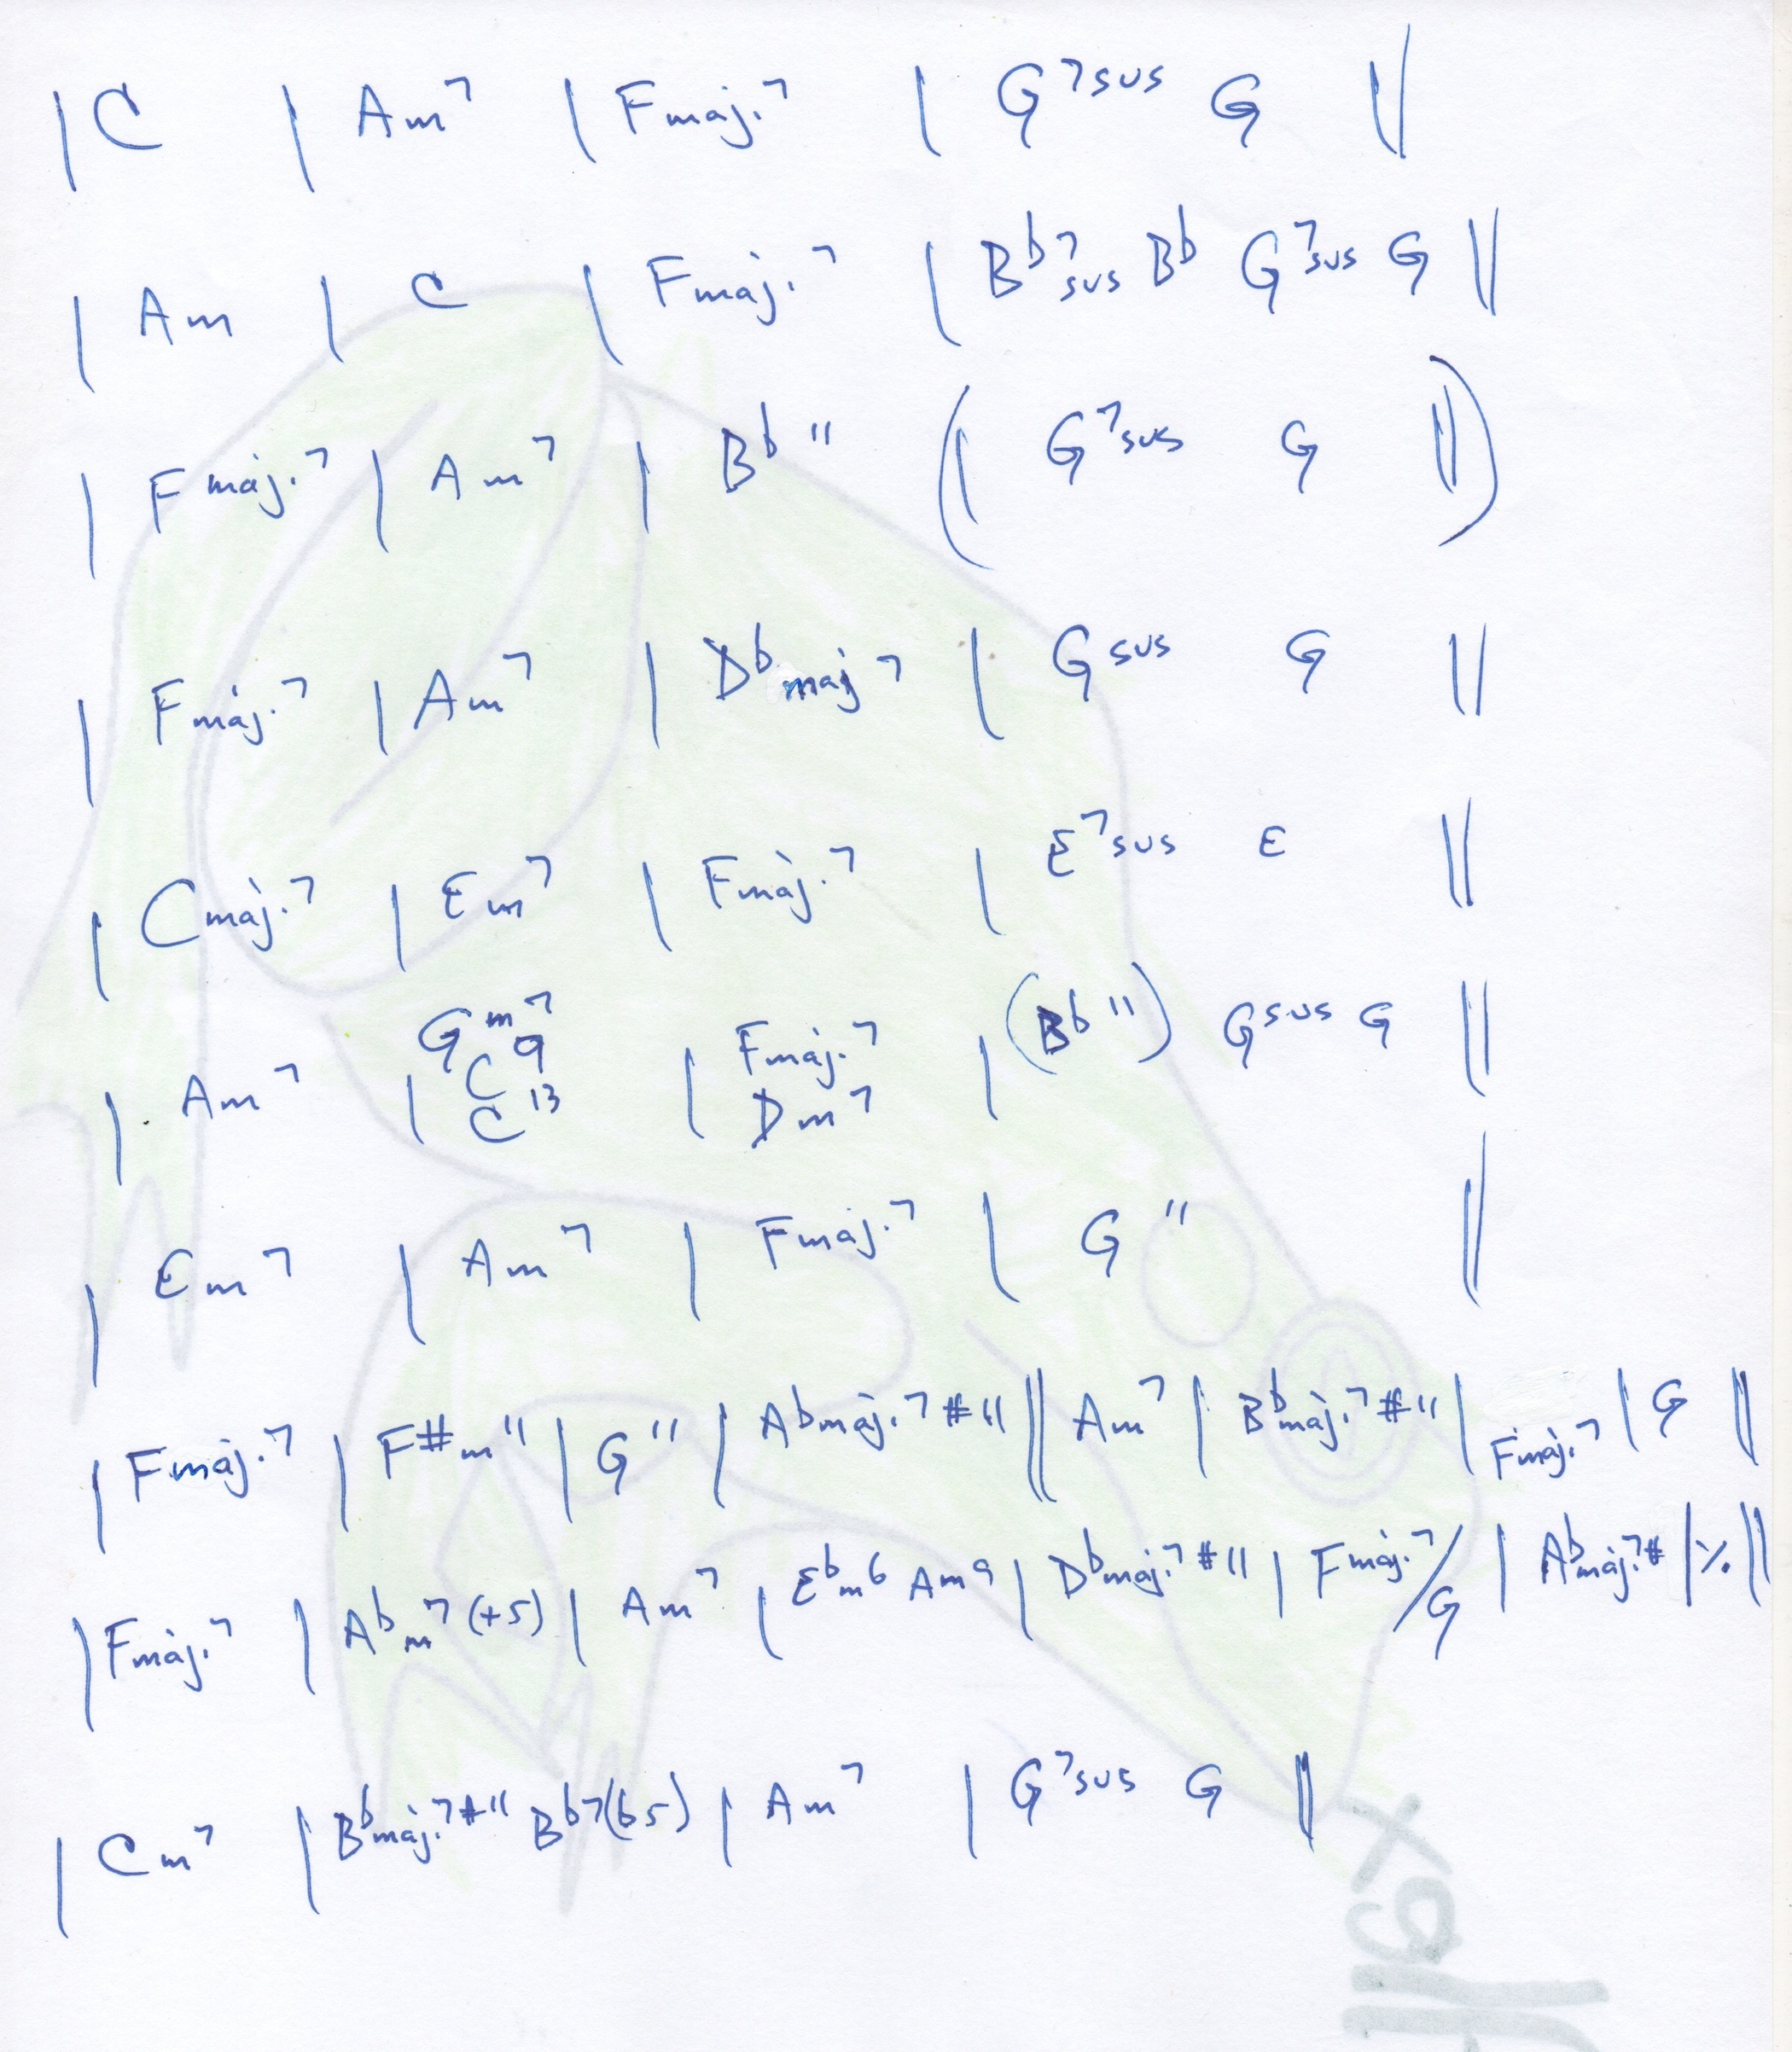 | C | Am7 | Fmaj.7 | G7sus G ||
| Am | C | Fmaj.7 | Bb7sus Bb G7sus G ||
| Fmaj.7 | Am7 | Bb11 (| G7sus G ||)
| Fmaj.7 | Am7 | Dbmaj7 | Gsus G ||
| Cmaj.7 | Em7 | Fmaj.7 | E7sus E ||
Gm7
| Am7 | C9 | Fmaj.7 | (Bb11) Gsus G ||
C13 Dm7
| Em7 | Am7 | Fmaj.7 | G11 ||
| Fmaj.7 | F#m11 | G11 | Abmaj.7#11 || Am7 | Bbmaj.7#11 | Fmaj.7 | G ||
| Fmaj.7 | Abm7(+5) | Am7 | Ebm6 Am9 | Dbmaj.7#11 | Fmaj.7/G | Abmaj.7# | % ||
| Cm7 | Bbmaj.7#11 Bb7(b5) | Am7 | G7sus G ||